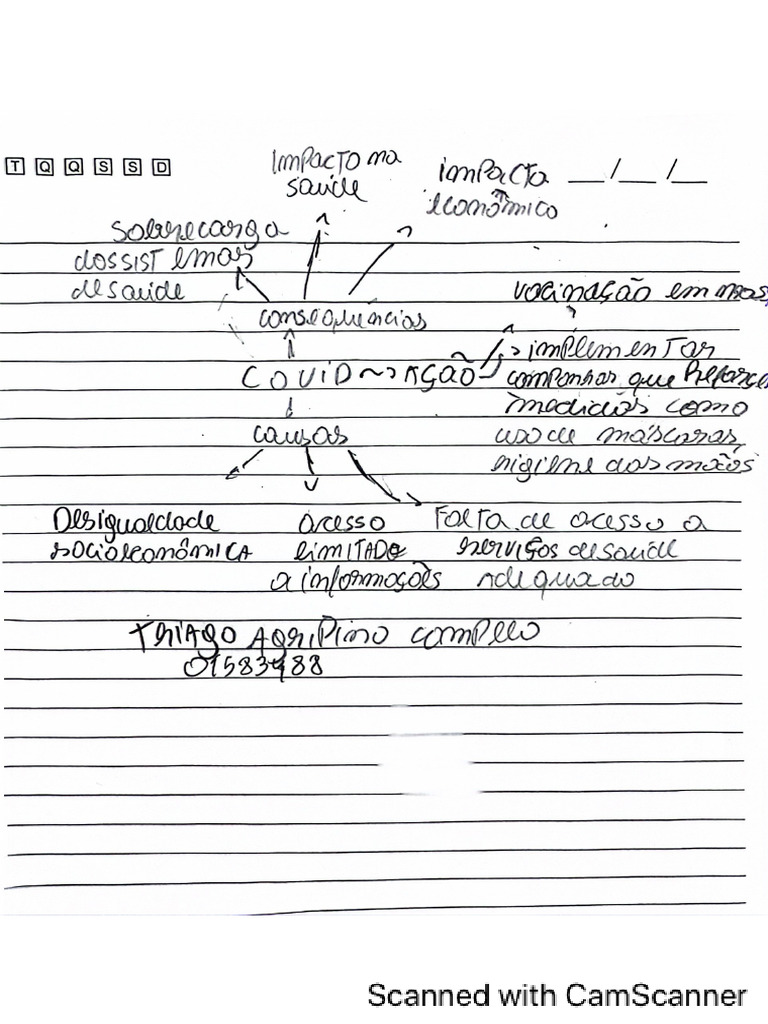 T Q Q S S D
impacto na
saúde
impacto __/__/__
econômico
sobrecarga
dos sistemas
de saúde
vacinação em mas
consequências
implementar
COVID ~> Ação
companhas que
medidas como
causas
uso de máscaras,
higiene das mãos
Desigualdade
socioeconômica
acesso
limitado
a informações
Falta de acesso a
serviços de saúde
adequado
Thiago Agripino Campelo
Scanned with CamScanner